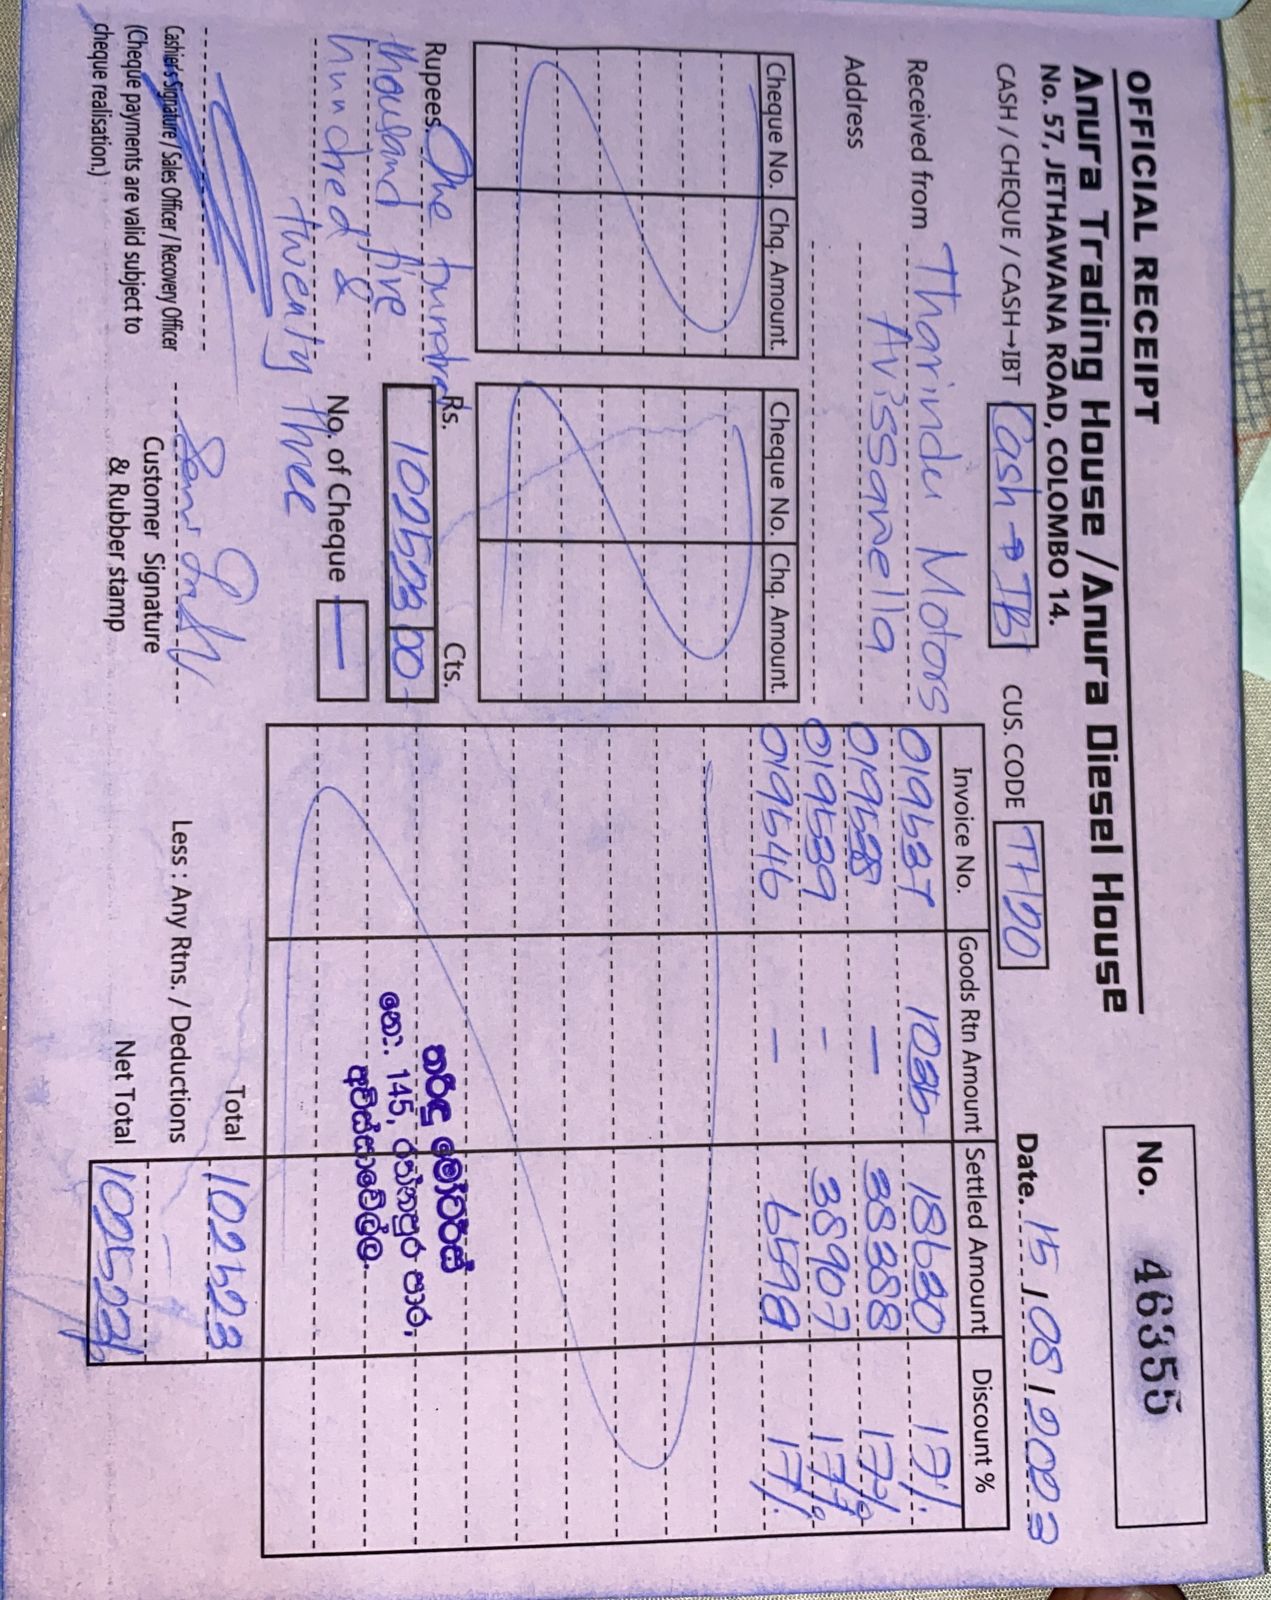 OFFICIAL RECEIPT
Anura Trading House / Anura Diesel House
No. 57, JETHAWANA ROAD, COLOMBO 14.
No. 46355
CASH / CHEQUE / CASH→IBT Cash → IBT CUS. CODE TH90
Date. 15 / 08 / 2023
Received from Tharindu Motors
Address Avissawella
Cheque No. Chq. Amount. Cheque No. Chq. Amount.
Invoice No. Goods Rtn Amount Settled Amount Discount %
019537 18630 17%
019538 — 38388 17%
019539 - 38907 17%
019546 — 6598 17%
Rupees. One hundred
thousand five
hundred &
twenty three
Rs. Cts.
102523 00
No. of Cheque —
තරිඳු මෝටර්ස්
නො. 145, රත්නපුර පාර,
අවිස්සාවේල්ල.
Total 102523
Less : Any Rtns. / Deductions —
Net Total 102523/-
Cashier's Signature / Sales Officer / Recovery Officer
(Cheque payments are valid subject to
cheque realisation.)
Customer Signature
& Rubber stamp